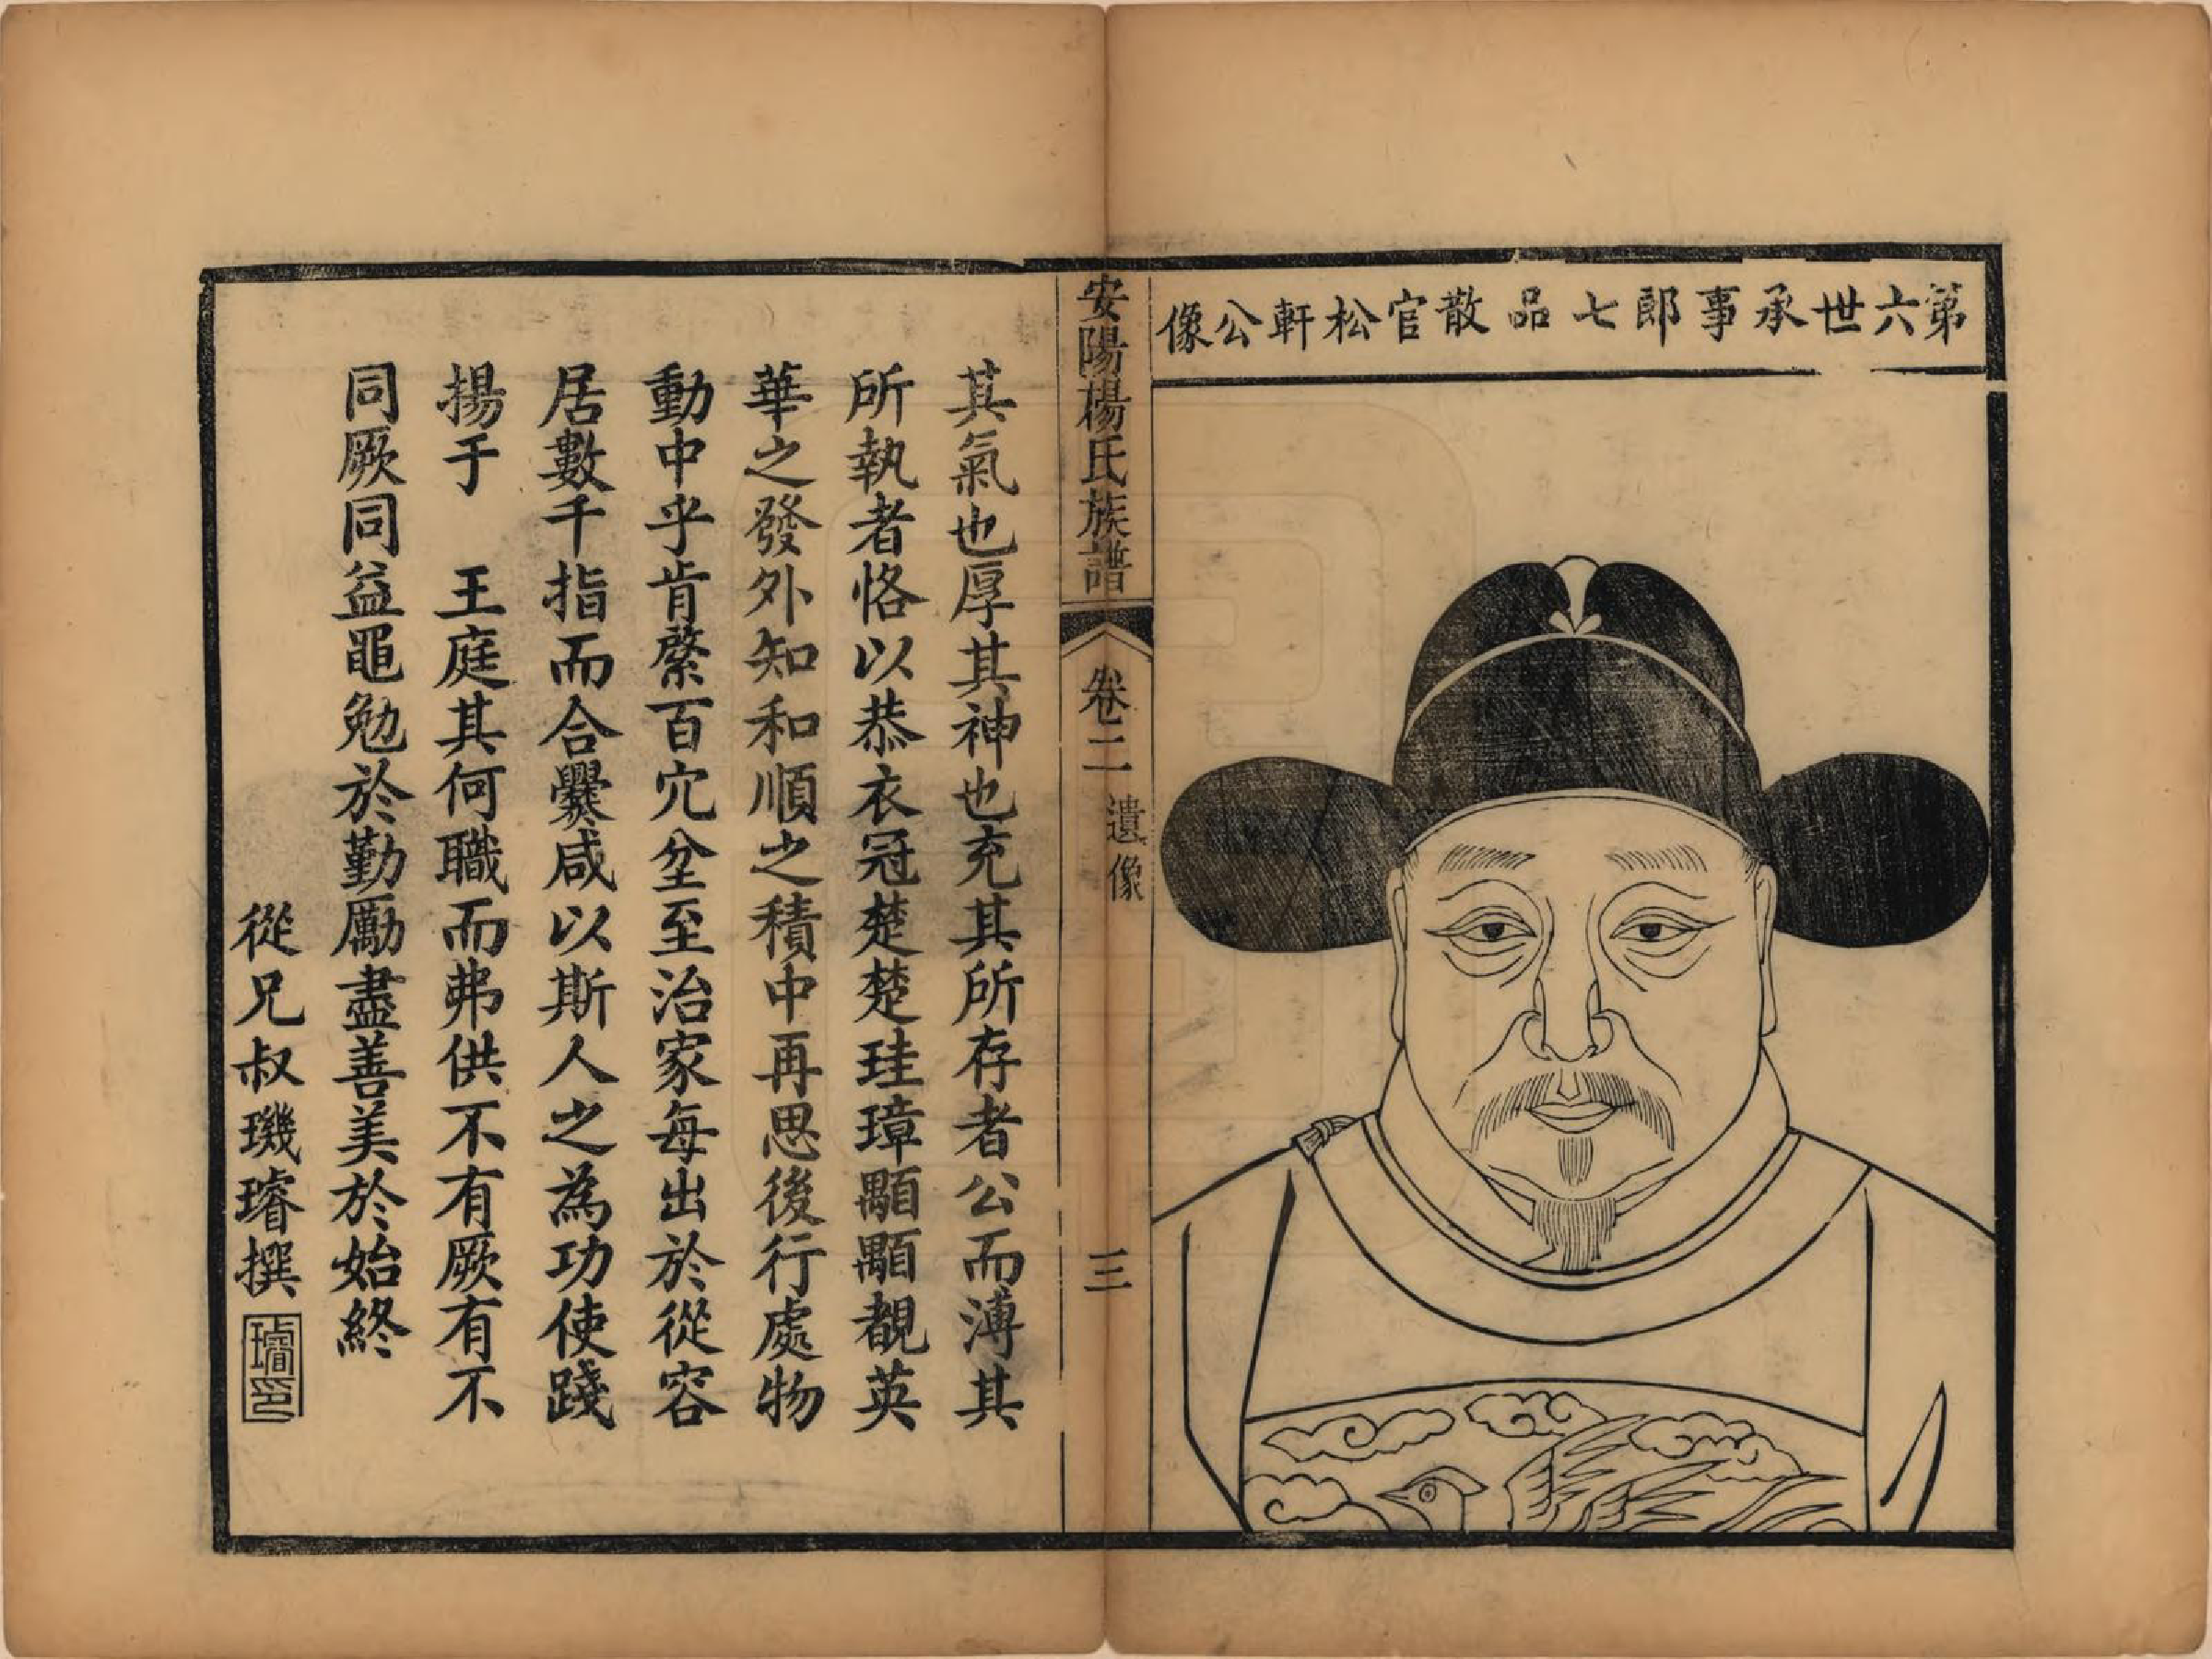 第六世承事郎七品散官松軒公像
安陽楊氏族譜
卷二 遺像
三
其氣也厚其神也充其所存者公而溥其
所執者恪以恭衣冠楚楚珪璋顒顒覩英
華之發外知和順之積中再思後行處物
動中乎肯綮百穴坌至治家每出於從容
居數千指而合爨咸以斯人之為功使踐
揚于　王庭其何職而弗供不有厥有不
同厥同益黽勉於勤勵盡善美於始終
從兄叔璣璿撰
璿印